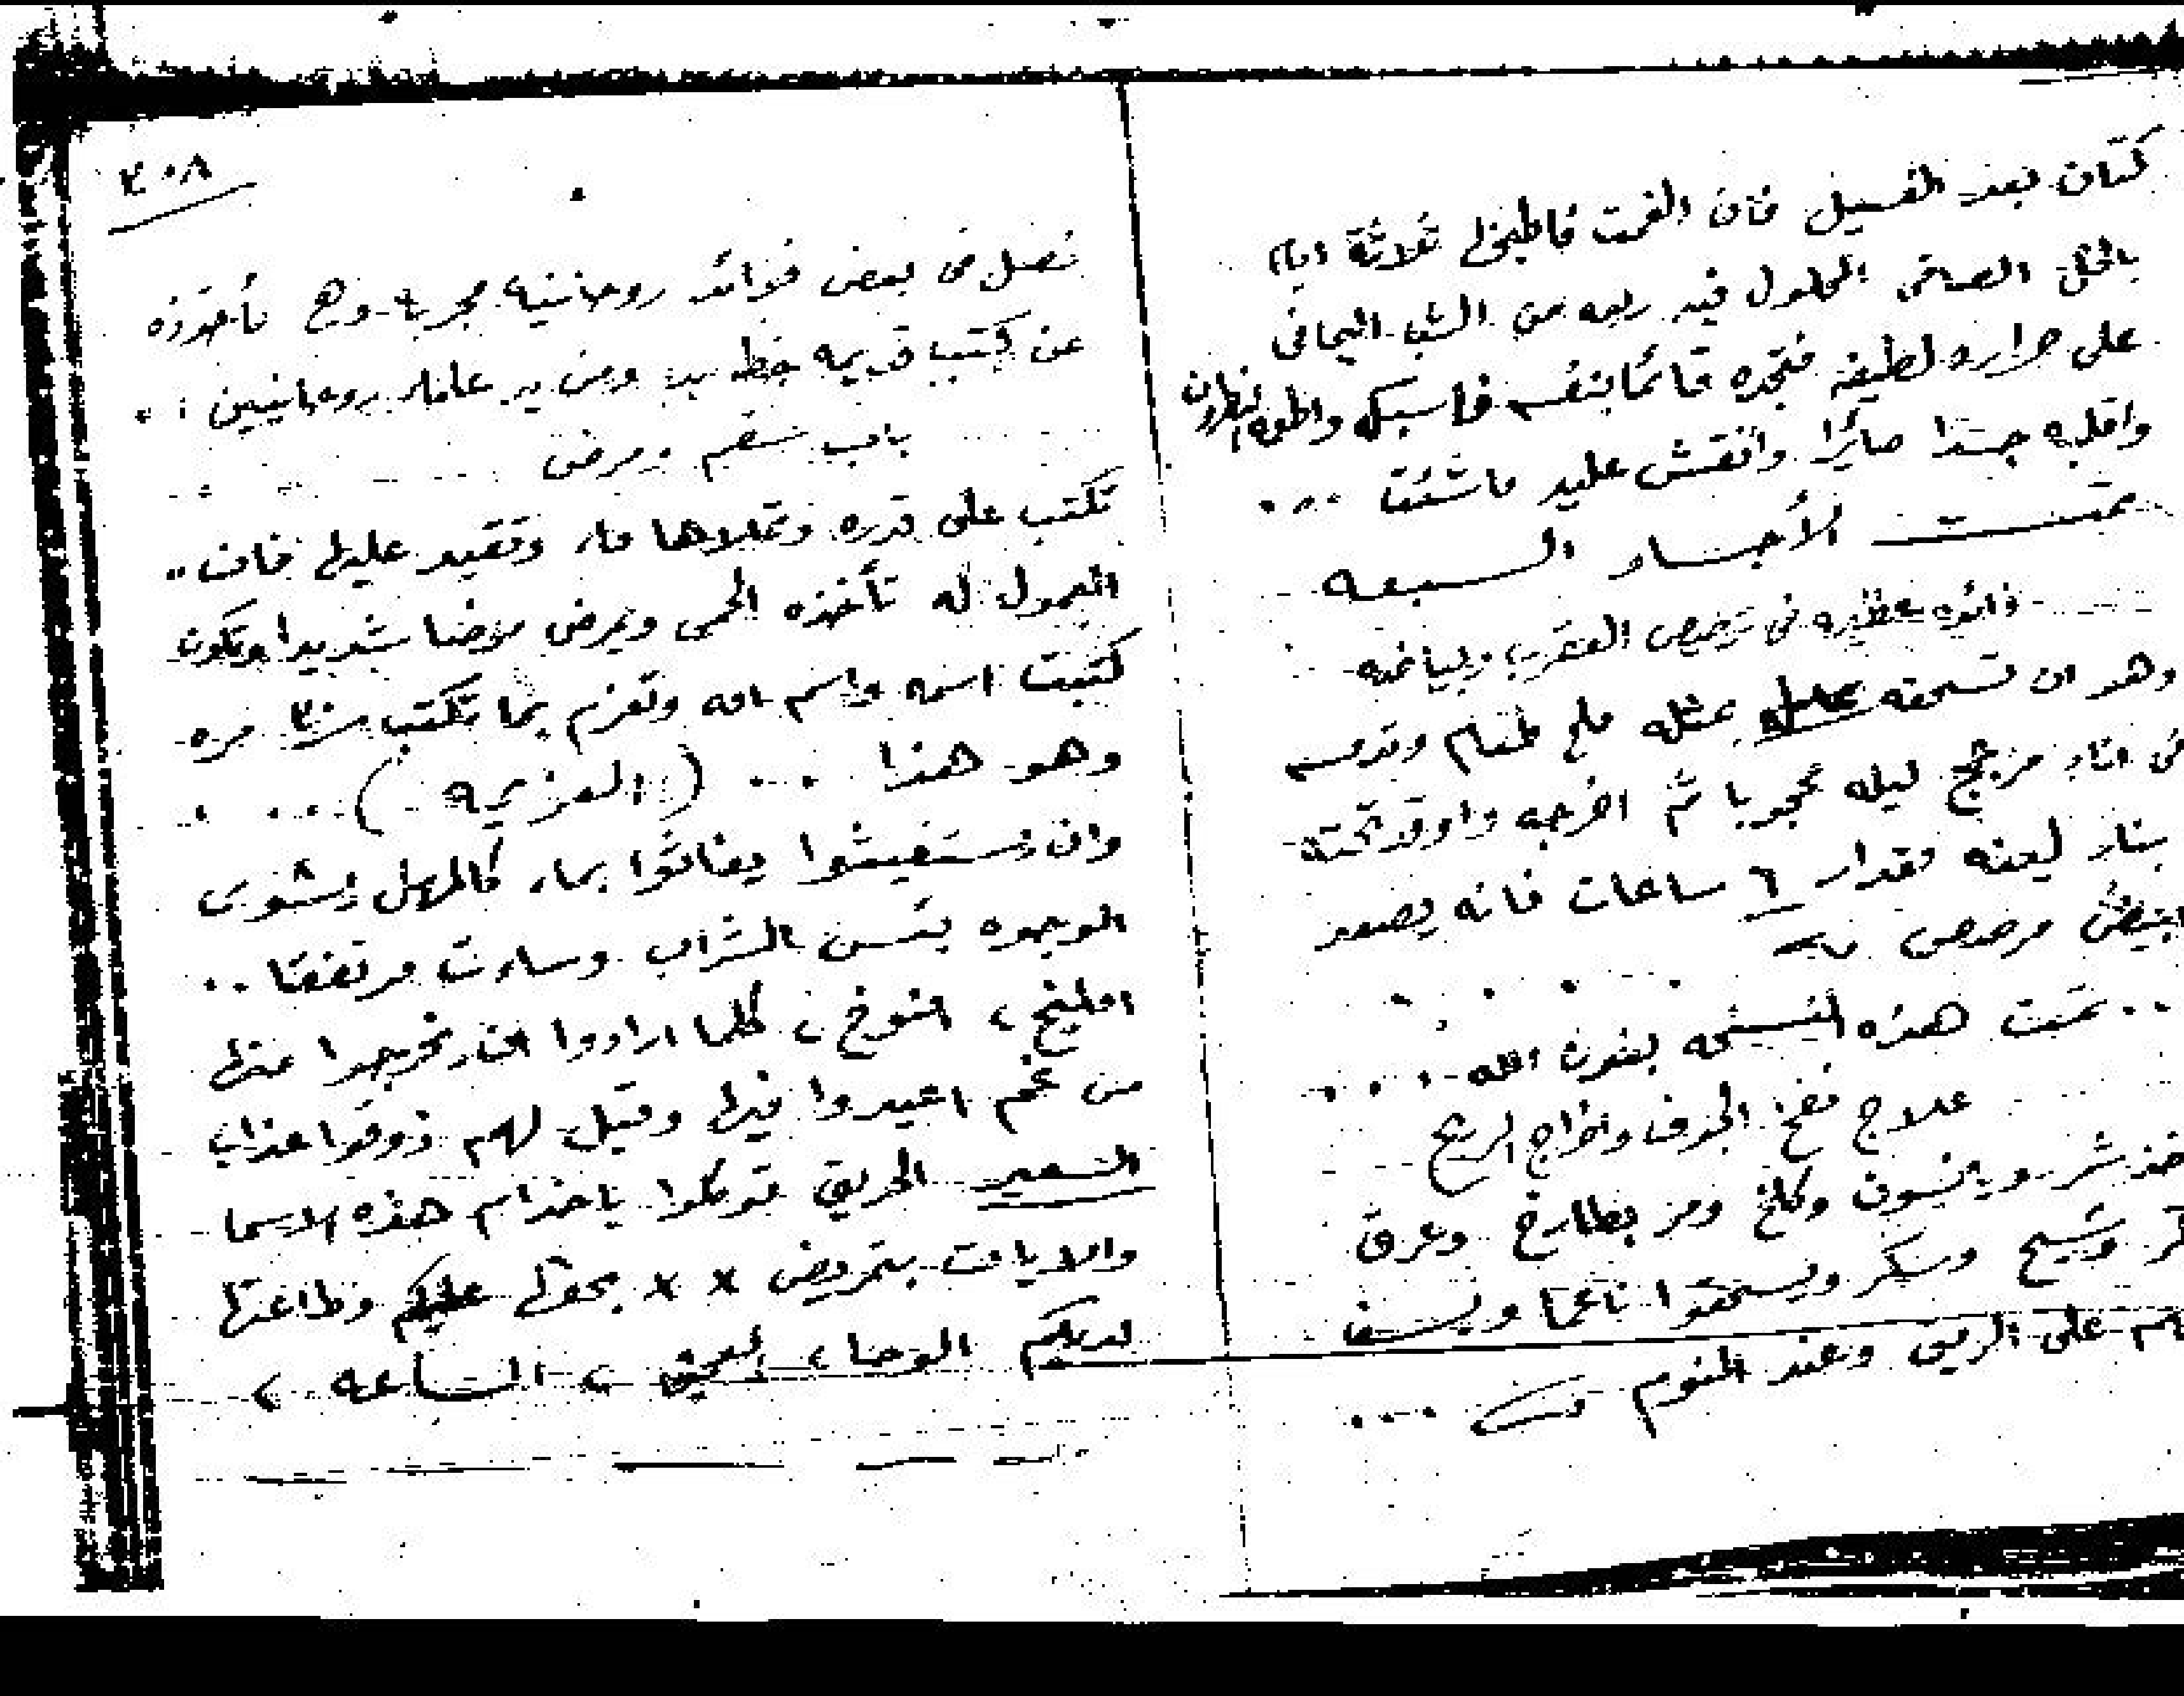 كتان بعد الغسيل فان الغمت فاطبخها ثلاثة ايام
بالخل الصافى المحلول فيه ربعه من الشب اليمانى
على حراره لطيفه فتجده قائما بنفسه فاسبكه واطعمه النطرون
واقلبه جسدا صابرا وانقش عليه ما شئت ...
تمت الأجساد السبعه
فائده عظيمه فى ترصيص العقرب وبياضه
وهو ان تسحقه بمثله ملح طعام وتدمسه
فى اناء مزجج ليله مجربا ثم اخرجه واوقد تحته
بنار لينه مقدار ٦ ساعات فانه يصعد
ابيض مرصص
.. تمت هذه النسخه بعون الله ...
علاج نفخ الجوف واخراج الريح
خذ شمر ويانسون وكلخ ومر بطارخ وعرق
وشيح وسكر ويسحقوا ناعما ويسف
على الريق وعند النوم ...
٣٠٨
فصل فى بعض فوائد روحانيه مجربه وهى مأخوذه
عن كتب قديمه خط يد ومن يد علماء روحانيين ..
باب سقم ومرض
تكتب على قدره وتملاها ماء وتقيد عليها فان ..
المعمول له تأخذه الحمى ويمرض مرضا شديدا وتكون
كتبت اسمه واسم امه وتعزم بما تكتب مره
وهو هذا ... ( العزيمه ) ...
وان يستغيثوا يغاثوا بماء كالمهل يشوى
الوجوه بئس الشراب وساءت مرتفقا ..
كلما ارادوا ان يخرجوا منها
من غم اعيدوا فيها وقيل لهم ذوقوا عذاب
السعير الحريق توكلوا ياخدام هذه الاسما
والايات بتمريض x x بحقها عليكم وطاعتها
لديكم الوحا، العجل، الساعه،